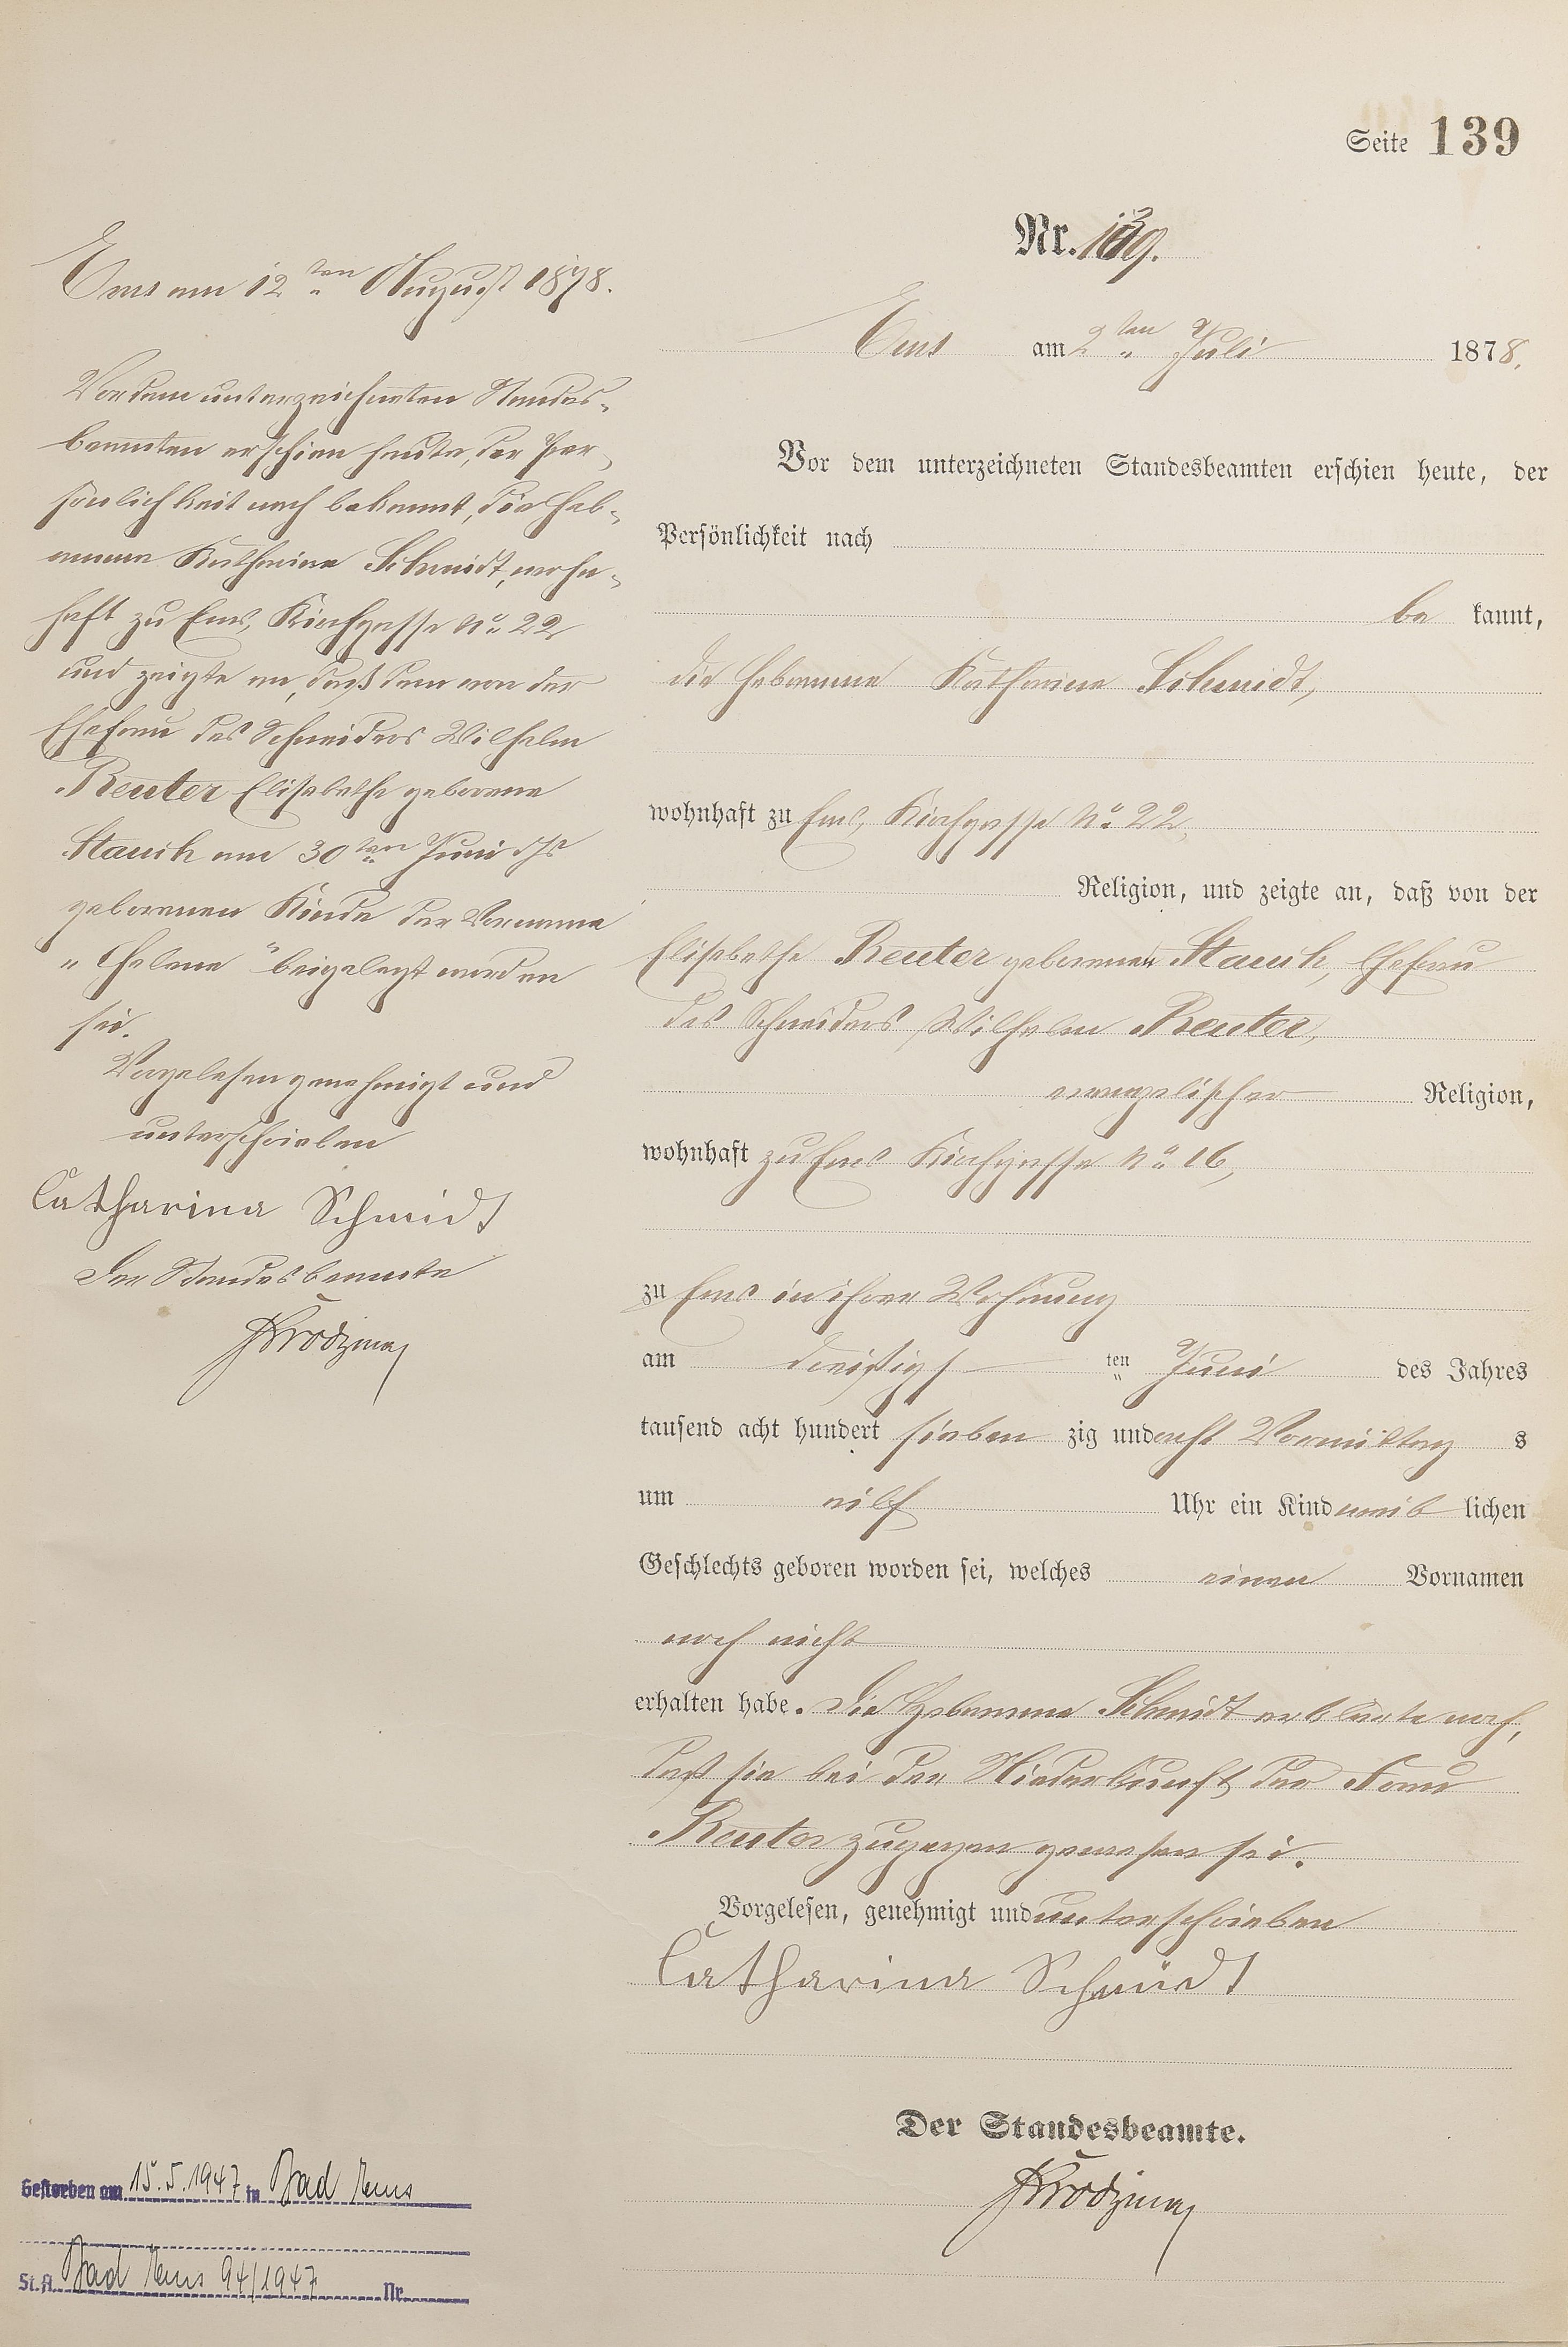 Seite 139
Nr. 139.
Ems am 2ten Juli 1878.
Vor dem unterzeichneten Standesbeamten erschien heute, der
Persönlichkeit nach
be kannt,
die Hebamme Katharina Schmidt,
wohnhaft zu Ems, Kirchgasse No. 22,
Religion, und zeigte an, daß von der
Elisabetha Reuter geborenen Stauch, Ehefrau
des Schneiders Wilhelm Reuter,
evangelischer Religion,
wohnhaft zu Ems Kirchgasse No. 16,
zu Ems in ihrer Wohnung
am dreißigsten Juni des Jahres
tausend acht hundert sieben zig und acht Vormittag s
um eilf Uhr ein Kind weib lichen
Geschlechts geboren worden sei, welches einen Vornamen
noch nicht
erhalten habe. Die Hebamme Schmidt erklärte noch,
daß sie bei der Niederkunft der Frau
Reuter zugegen gewesen sei.
Vorgelesen, genehmigt und unterschrieben
Catharina Schmidt
Der Standesbeamte.
Ems am 12ten August 1878.
Vor dem unterzeichneten Standes-
beamten erschien heute, der Per-
sönlichkeit nach bekannt, die Heb-
amme Katharina Schmidt, wohn-
haft zu Ems, Kirchgasse No. 22
und zeigte an, daß dem von der
Ehefrau des Schneiders Wilhelm
Reuter Elisabetha geborene
Stauch am 30ten Juni djs
geborenen Kinde der Vorname
„Helene“ beigelegt worden
sei.
Vorgelesen genehmigt und
unterschrieben
Catharina Schmidt
Der Standesbeamte
Gestorben am 15.5.1947 in Bad Ems
St.A. Bad Ems 94/1947 Nr.